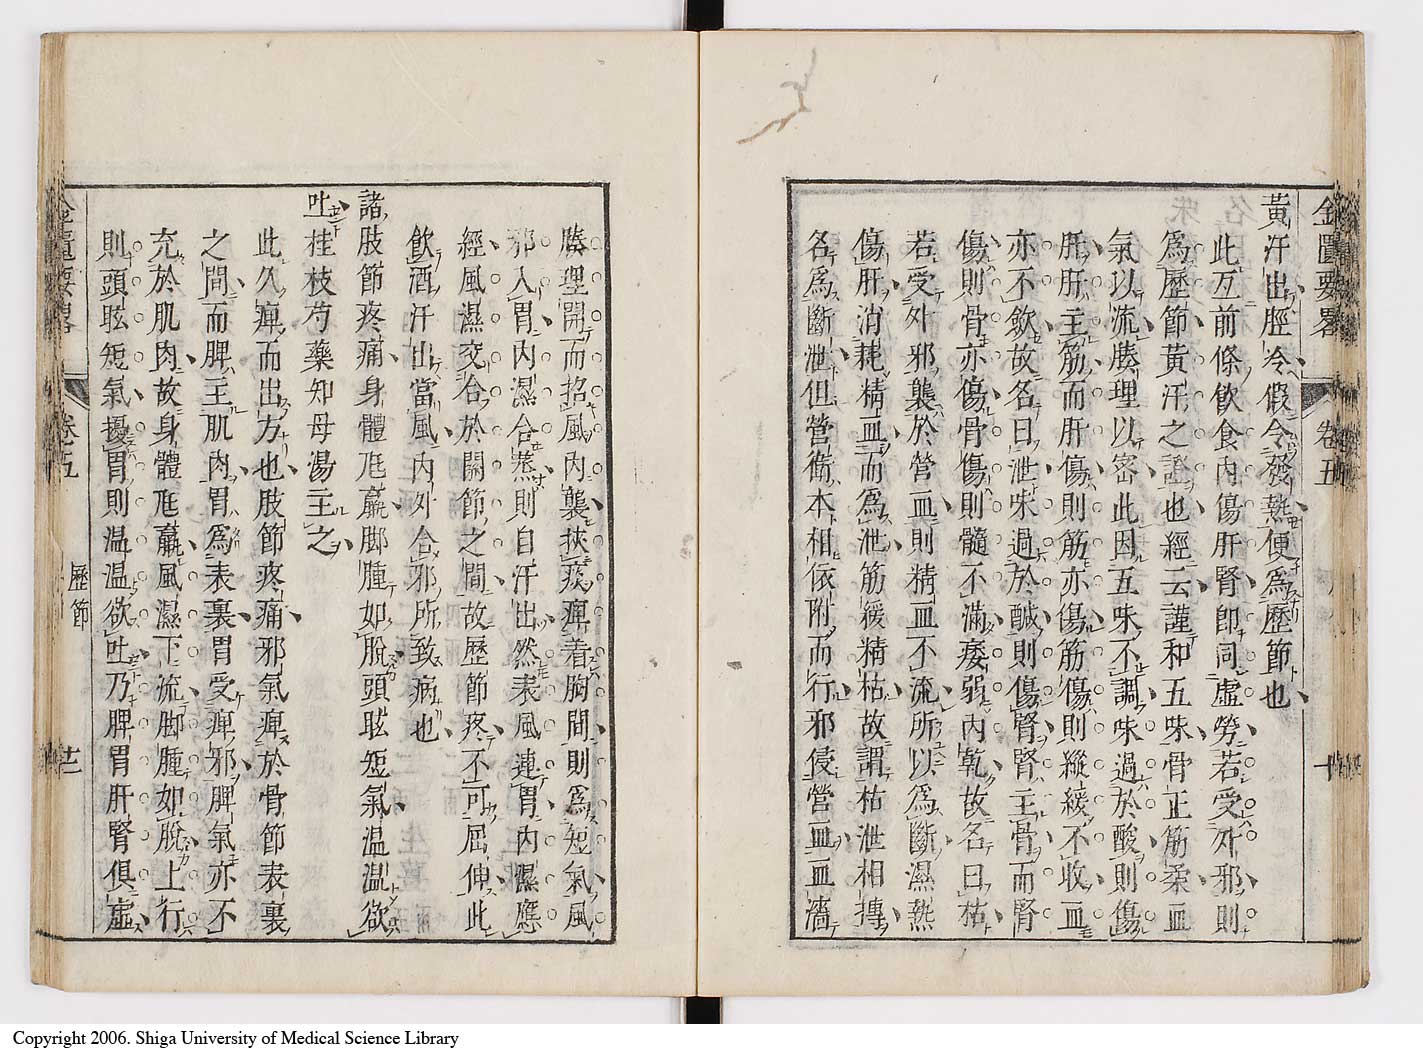 金匱要畧 卷五 十
黃汗出脛冷假令發熱便爲歷節也
此互前條飲食內傷肝腎卽同虛勞若受外邪則
爲歷節黃汗之證也經云謹和五味骨正筋柔血
氣以流腠理以密此因五味不調味過於酸則傷
肝肝主筋而肝傷則筋亦傷筋傷則緩緩不收血
亦不斂故名曰泄味過於鹹則傷腎腎主骨而腎
傷則骨亦傷骨傷則髓不滿痿弱內乾故名曰枯
若受外邪襲於營血則精血不流所以爲斷濕熱
傷肝消耗精血而爲泄筋緩精枯故謂枯泄相摶
名爲斷泄但營衛本相依附而行邪侵營血血濇
腠理開而招風內襲挾痰痺着胸間則爲短氣風
邪入胃內濕合蒸則自汗出然表風連胃內濕應
經風濕交合於關節之間故歷節疼不可屈伸此
飲酒汗出當風內外合邪所致病也
諸肢節疼痛身體尫羸脚腫如脫頭眩短氣温温欲
吐桂枝芍藥知母湯主之
此久痺而出方也肢節疼痛邪氣痺於骨節表裏
之間而脾主肌肉胃爲表裏胃受痺邪脾氣亦不
充於肌肉故身體尫羸風濕下流脚腫如脫上行
則頭眩短氣擾胃則温温欲吐乃脾胃肝腎俱虛
金匱要畧 卷五 歷節
Copyright 2006. Shiga University of Medical Science Library